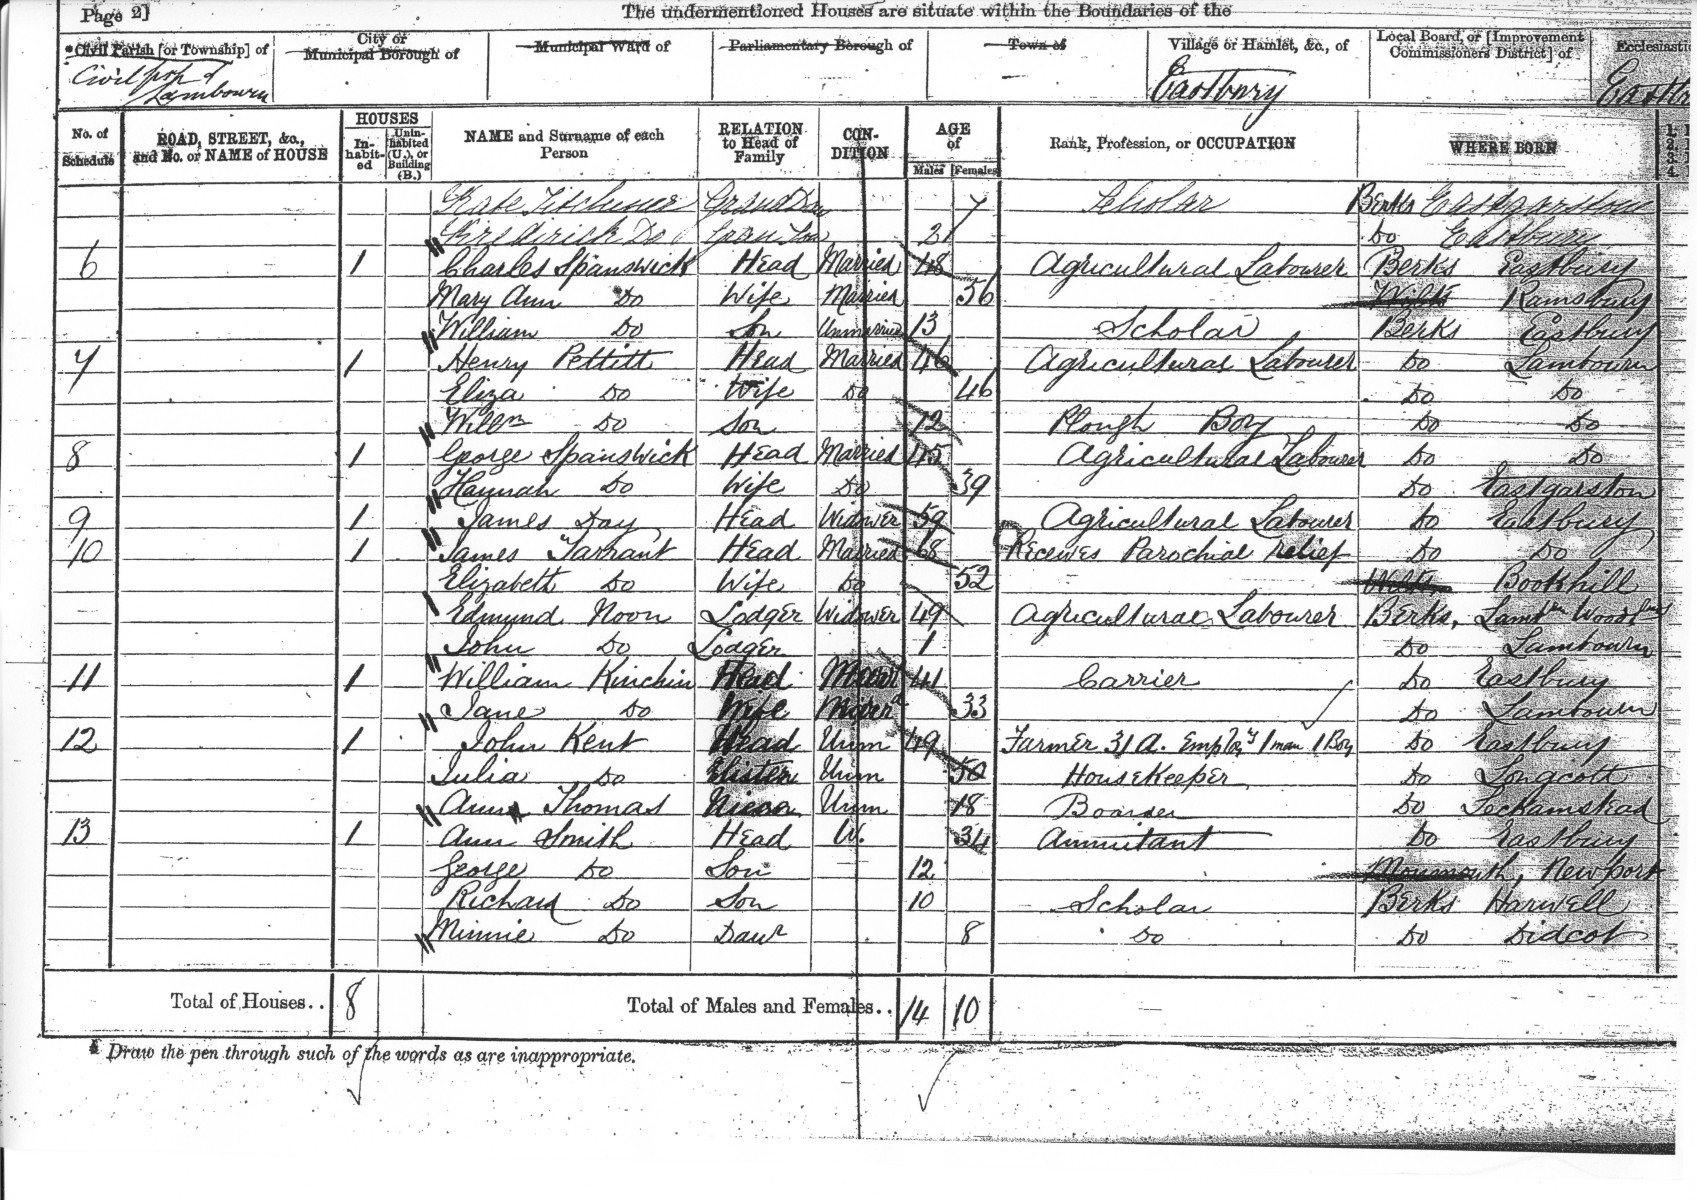 Page 2]
The undermentioned Houses are situate within the Boundaries of the
Civil Parish [or Township] of
City or Municipal Borough of
Municipal Ward of
Parliamentary Borough of
Town of
Village or Hamlet, &c., of
Local Board, or [Improvement Commissioners District] of
Civil Lambourn Eastbury
No. of Schedule
ROAD, STREET, &c., and No. or NAME of HOUSE
HOUSES
In-habit-ed
Unin-habited (U.), or Building (B.)
NAME and Surname of each Person
RELATION to Head of Family
CON-DITION
AGE of
Males Females
Rank, Profession, or OCCUPATION
WHERE BORN
Kate Titchener Grand Daur 7 Scholar Berks Eastgarston
Frederick Do Gran Son 2 Do Eastbury
6 1 Charles Spanswick Head Married 48 Agricultural Labourer Berks Eastbury
Mary Ann Do Wife Married 56 Wilts Ramsbury
William Do Son Unmarried 13 Scholar Berks Eastbury
7 1 Henry Pettitt Head Married 46 Agricultural Labourer Do Lambourn
Eliza Do Wife Do 46 Do Do
Willm Do Son 12 Plough Boy Do Do
8 1 George Spanswick Head Married 45 Agricultural Labourer Do Do
Hannah Do Wife Do 39 Do Eastgarston
9 1 James Day Head Widower 59 Agricultural Labourer Do Eastbury
10 1 James Tarrant Head Married 68 Receives Parochial relief Do Do
Elizabeth Do Wife Do 52 Wilts Bookhill
Edmund Noon Lodger Widower 49 Agricultural Labourer Berks,
John Do Lodger 1 Do Lambourn
11 1 William Kinchin Head 41 Carrier Do Eastbury
Jane Do Wife 33 Do Lambourn
12 1 John Kent Head Unm 49 Farmer 31 A. Employg 1 man 1 Boy Do Eastbury
Julia Do Unm 50 HouseKeeper Do Longcott
Ann Thomas Unm 18 Boarder Do
13 1 Ann Smith Head W. 34 Annuitant Do Eastbury
George Do Son 12 Monmouth, Newport
Richard Do Son 10 Scholar Berks Harwell
Minnie Do Daur 8 Do Do Didcot
Total of Houses.. 8 Total of Males and Females.. 14 10
* Draw the pen through such of the words as are inappropriate.